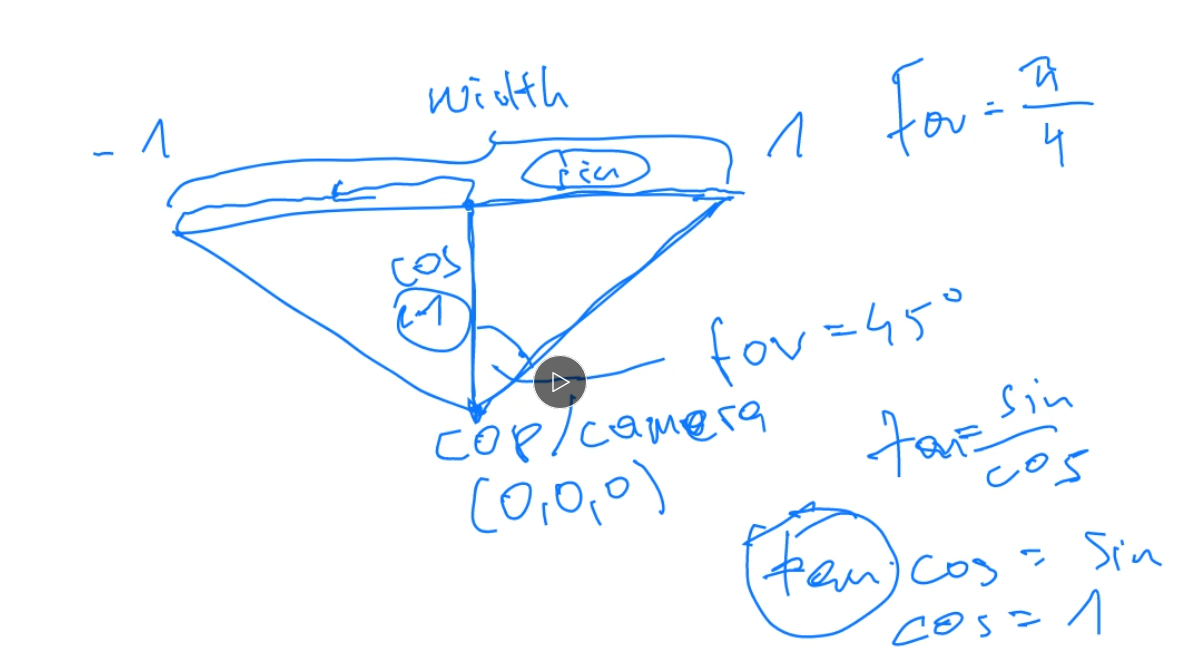 width
- 1
1
Fov = π/4
sin
cos
-1
fov = 45°
COP/camera
(0,0,0)
tan = sin/cos
tan cos = sin
cos = 1